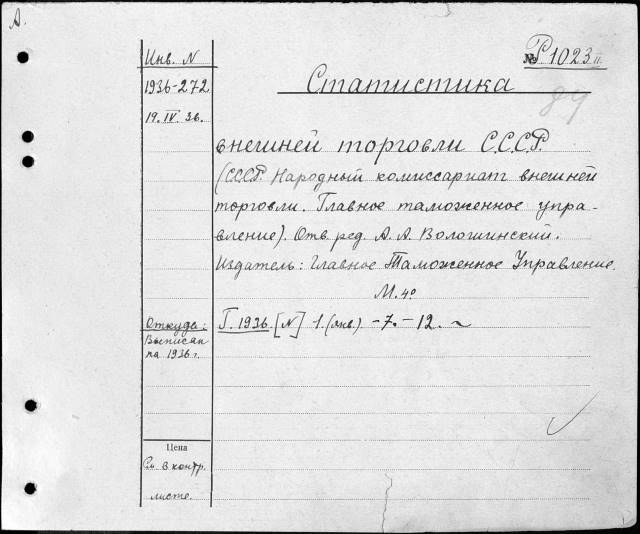 А.
Инв. N
1936-272
19.IV.36.
№ Р.1023 II.
Статистика
внешней торговли С.С.С.Р.
(С.С.С.Р. Народный комиссариат внешней
торговли. Главное таможенное упра-
вление). Отв. ред. А. А. Волошинский.
Издатель: Главное Таможенное Управление.
М. 4°
Откуда:
Выписан
на 1936 г.
Г. 1936. [N] 1. (янв.) - 7. - 12. ~
Цена
См. в контр.
листе.